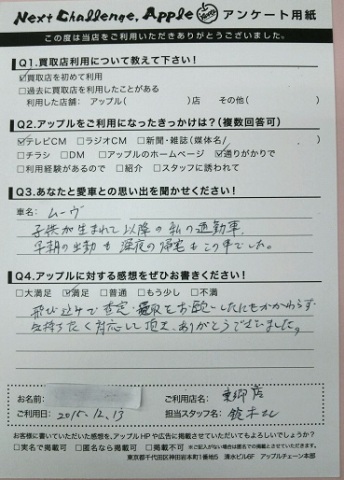 Next Challenge, Apple アンケート用紙
この度は当店をご利用いただきありがとうございました。
Q1.買取店利用について教えて下さい!
☑買取店を初めて利用
□過去に買取店を利用したことがある
利用した店舗: アップル( )店 その他( )
Q2.アップルをご利用になったきっかけは?(複数回答可)
☑テレビCM □ラジオCM □新聞・雑誌(媒体名 )
□チラシ □DM □アップルのホームページ ☑通りがかりで
□利用経験があるので □紹介 □スタッフに誘われて
Q3.あなたと愛車との思い出を聞かせください!
車名: ムーヴ
子供が生まれて以降の私の通勤車。
早朝の出勤も深夜の帰宅もこの車でした。
Q4.アップルに対する感想をぜひお書きください!
□大満足 ☑満足 □普通 □もう少し □不満
飛び込みで査定・買取をお願いしたにもかかわらず
気持ちよく対応して頂き、ありがとうございました。
お名前: ご利用店名: 東郷店
ご利用日: 2015.12.13 担当スタッフ名: 鈴木さん
お客様に書いていただいた感想を、アップルHPや広告に掲載させていただいてもよろしいでしょうか?
□実名で掲載可 □匿名なら掲載可 □掲載不可 ※ご記入がない場合は匿名での掲載可とさせていただきます。
東京都千代田区神田岩本町1番地5 清水ビル6F アップルチェーン本部